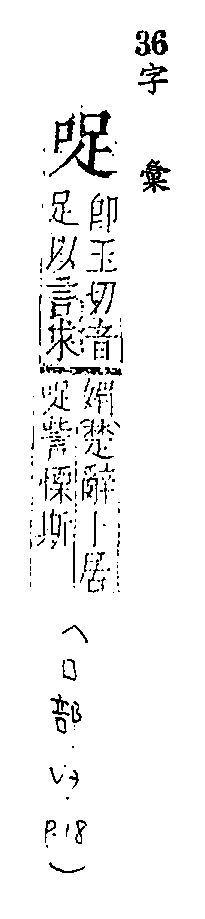 36
字彙
哫
即玉切音
足以言求
媚楚辭卜居
哫訾慄斯
(口部.V3.P.18)